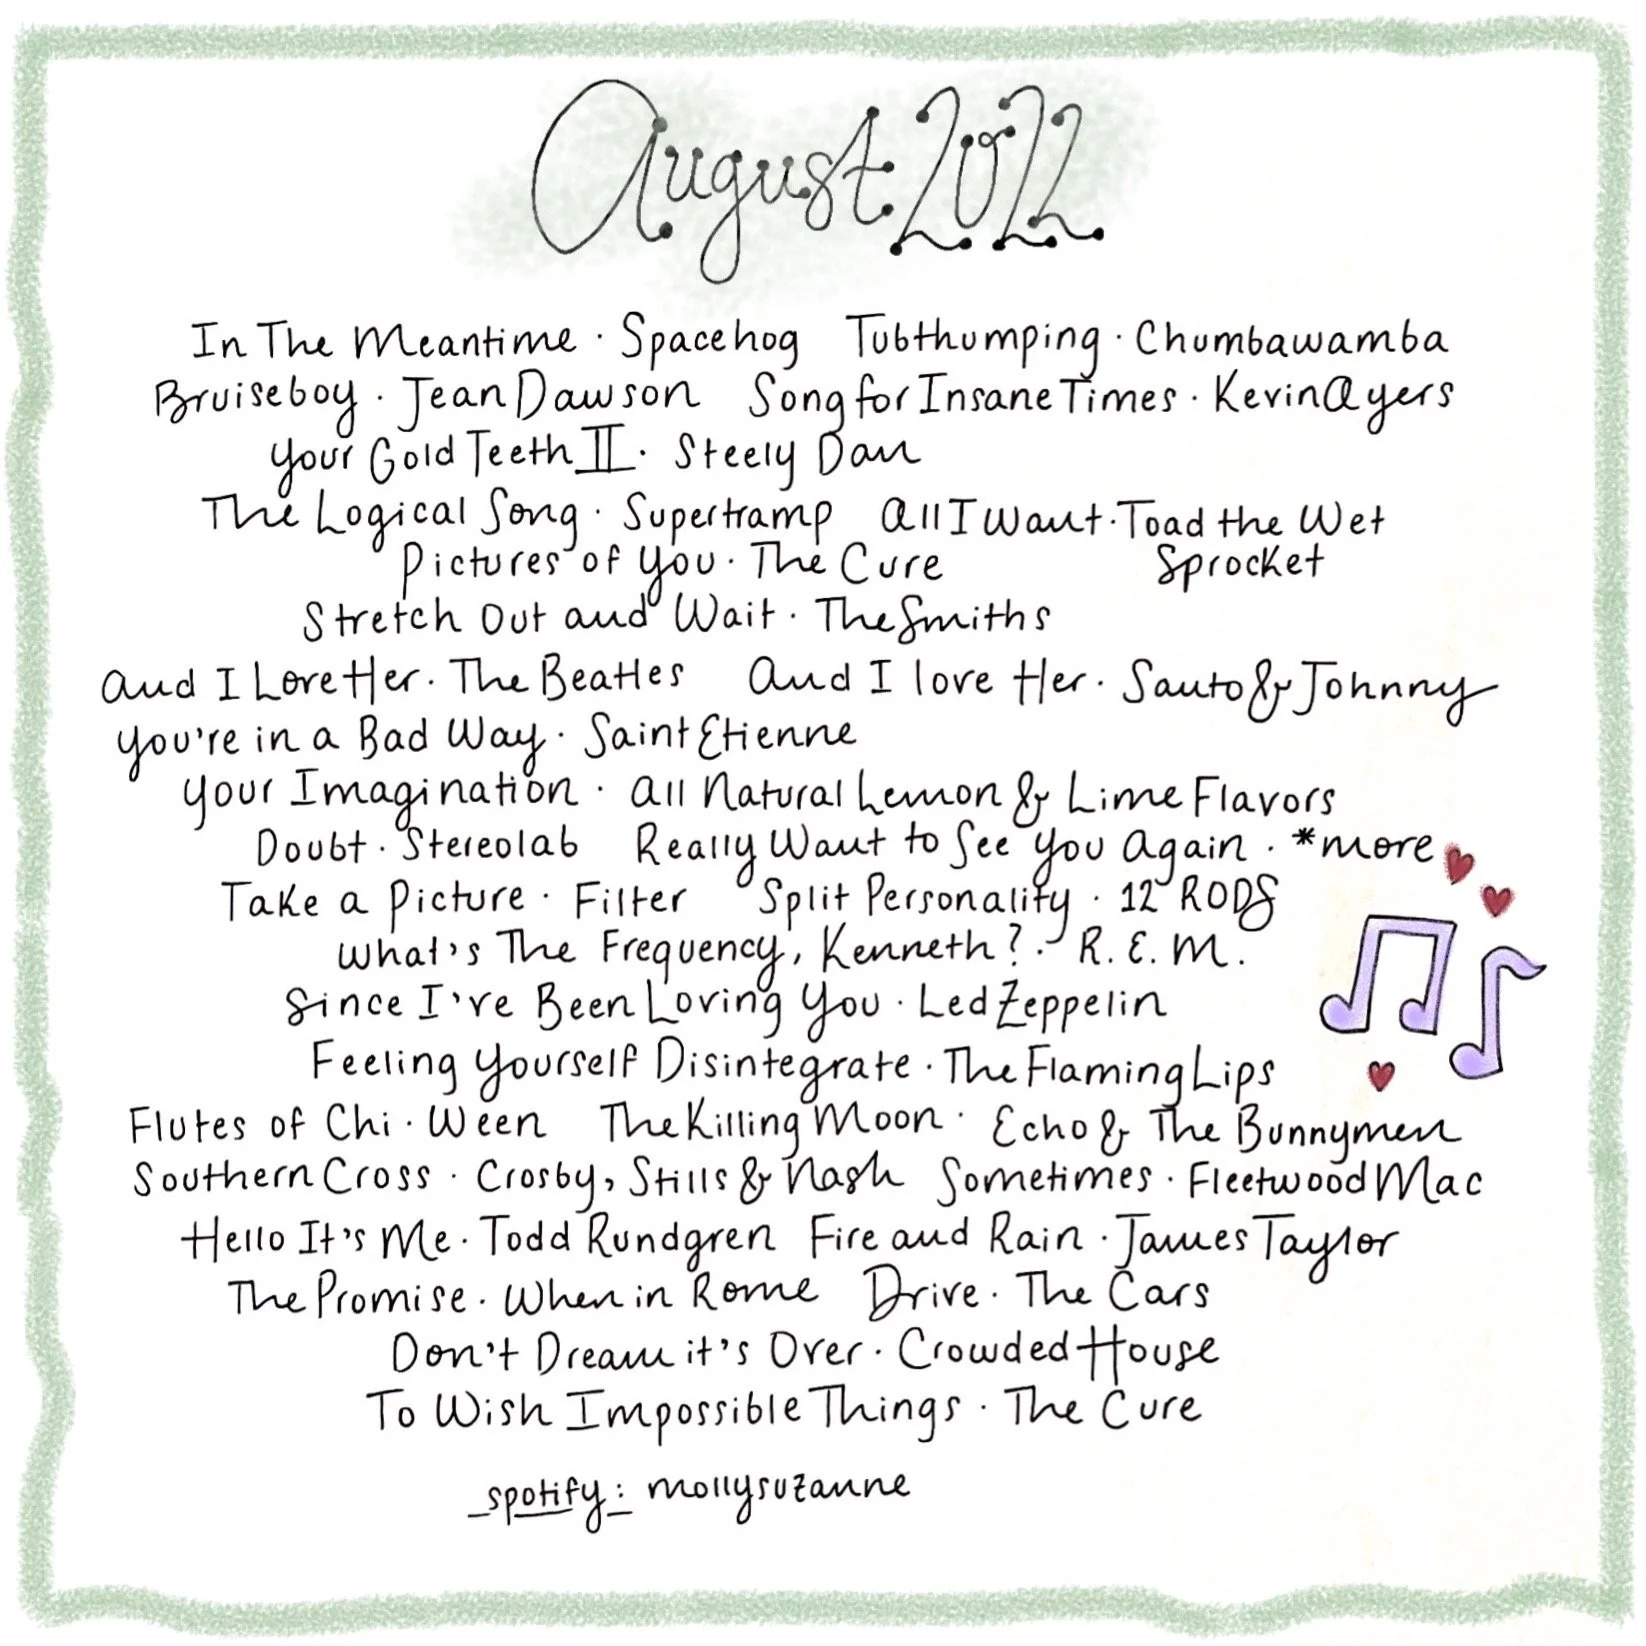 August 2022
In The Meantime · Spacehog Tubthumping · Chumbawamba
Bruiseboy · Jean Dawson Song for Insane Times · Kevin Ayers
Your Gold Teeth II · Steely Dan
The Logical Song · Supertramp All I Want · Toad the Wet
Pictures of You · The Cure Sprocket
Stretch Out and Wait · The Smiths
And I Love Her · The Beatles And I love Her · Santo & Johnny
You're in a Bad Way · Saint Etienne
Your Imagination · All Natural Lemon & Lime Flavors
Doubt · Stereolab Really Want to See You Again · *more
Take a Picture · Filter Split Personality · 12 RODS
What's The Frequency, Kenneth? · R.E.M.
Since I've Been Loving You · Led Zeppelin
Feeling Yourself Disintegrate · The Flaming Lips
Flutes of Chi · Ween The Killing Moon · Echo & The Bunnymen
Southern Cross · Crosby, Stills & Nash Sometimes · Fleetwood Mac
Hello It's Me · Todd Rundgren Fire and Rain · James Taylor
The Promise · When in Rome Drive · The Cars
Don't Dream it's Over · Crowded House
To Wish Impossible Things · The Cure
spotify: mollysuzanne